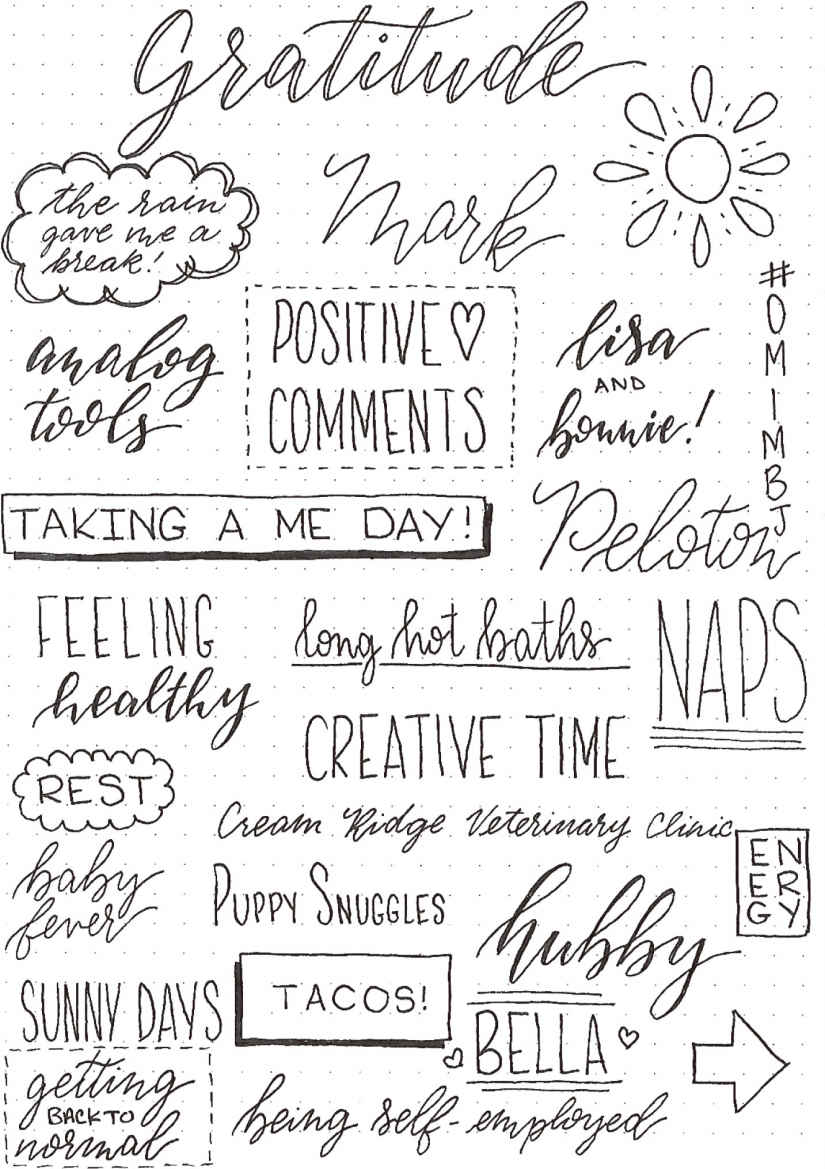 Gratitude
the rain
gave me a
break!
Mark
#OMIMBJ
POSITIVE
COMMENTS
analog
tools
lisa
AND
bonnie!
TAKING A ME DAY!
Peloton
FEELING
healthy
long hot baths
NAPS
CREATIVE TIME
REST
Cream Ridge Veterinary Clinic
EN
ER
GY
baby
fever
PUPPY SNUGGLES
hubby
SUNNY DAYS
TACOS!
BELLA
getting
BACK TO
normal
being self-employed